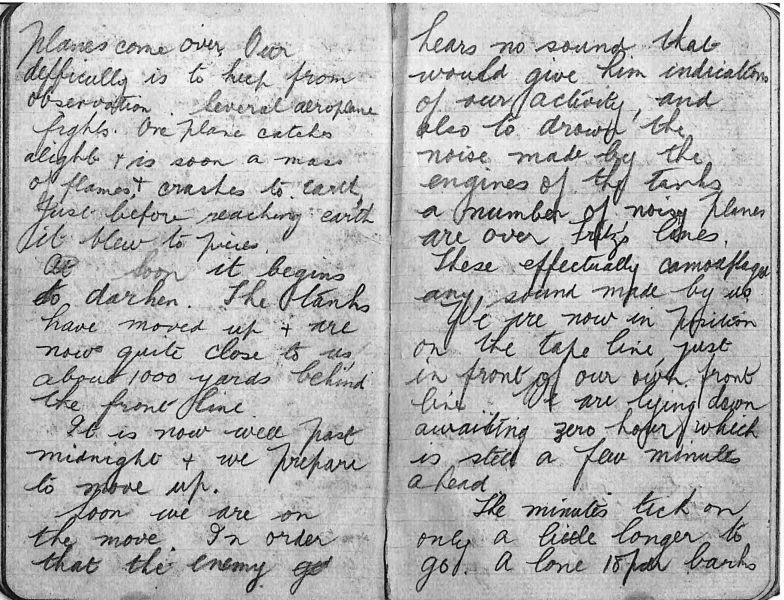 planes come over. Our
difficulty is to keep from
observation Several aeroplane
fights. One plane catches
alight & is soon a mass
of flames, & crashes to earth,
Just before reaching earth
it blew to pieces
Soon it begins
to darken. The tanks
have moved up & are
now quite close to us,
about 1000 yards behind
the front line
It is now well past
midnight & we prepare
to move up.
Soon we are on
the move In order
that the enemy
hears no sound that
would give him indications
of our activity, and
also to drown the
noise made by the
engines of the tanks
a number of noisy planes
are over Fritz's lines.
These effectually camouflage
any sound made by us.
We are now in position
on the tape line, just
in front of our own front
line. & are lying down
awaiting zero hour, which
is still a few minutes
ahead.
The minutes tick on
only a little longer to
go. A lone 18pdr barks